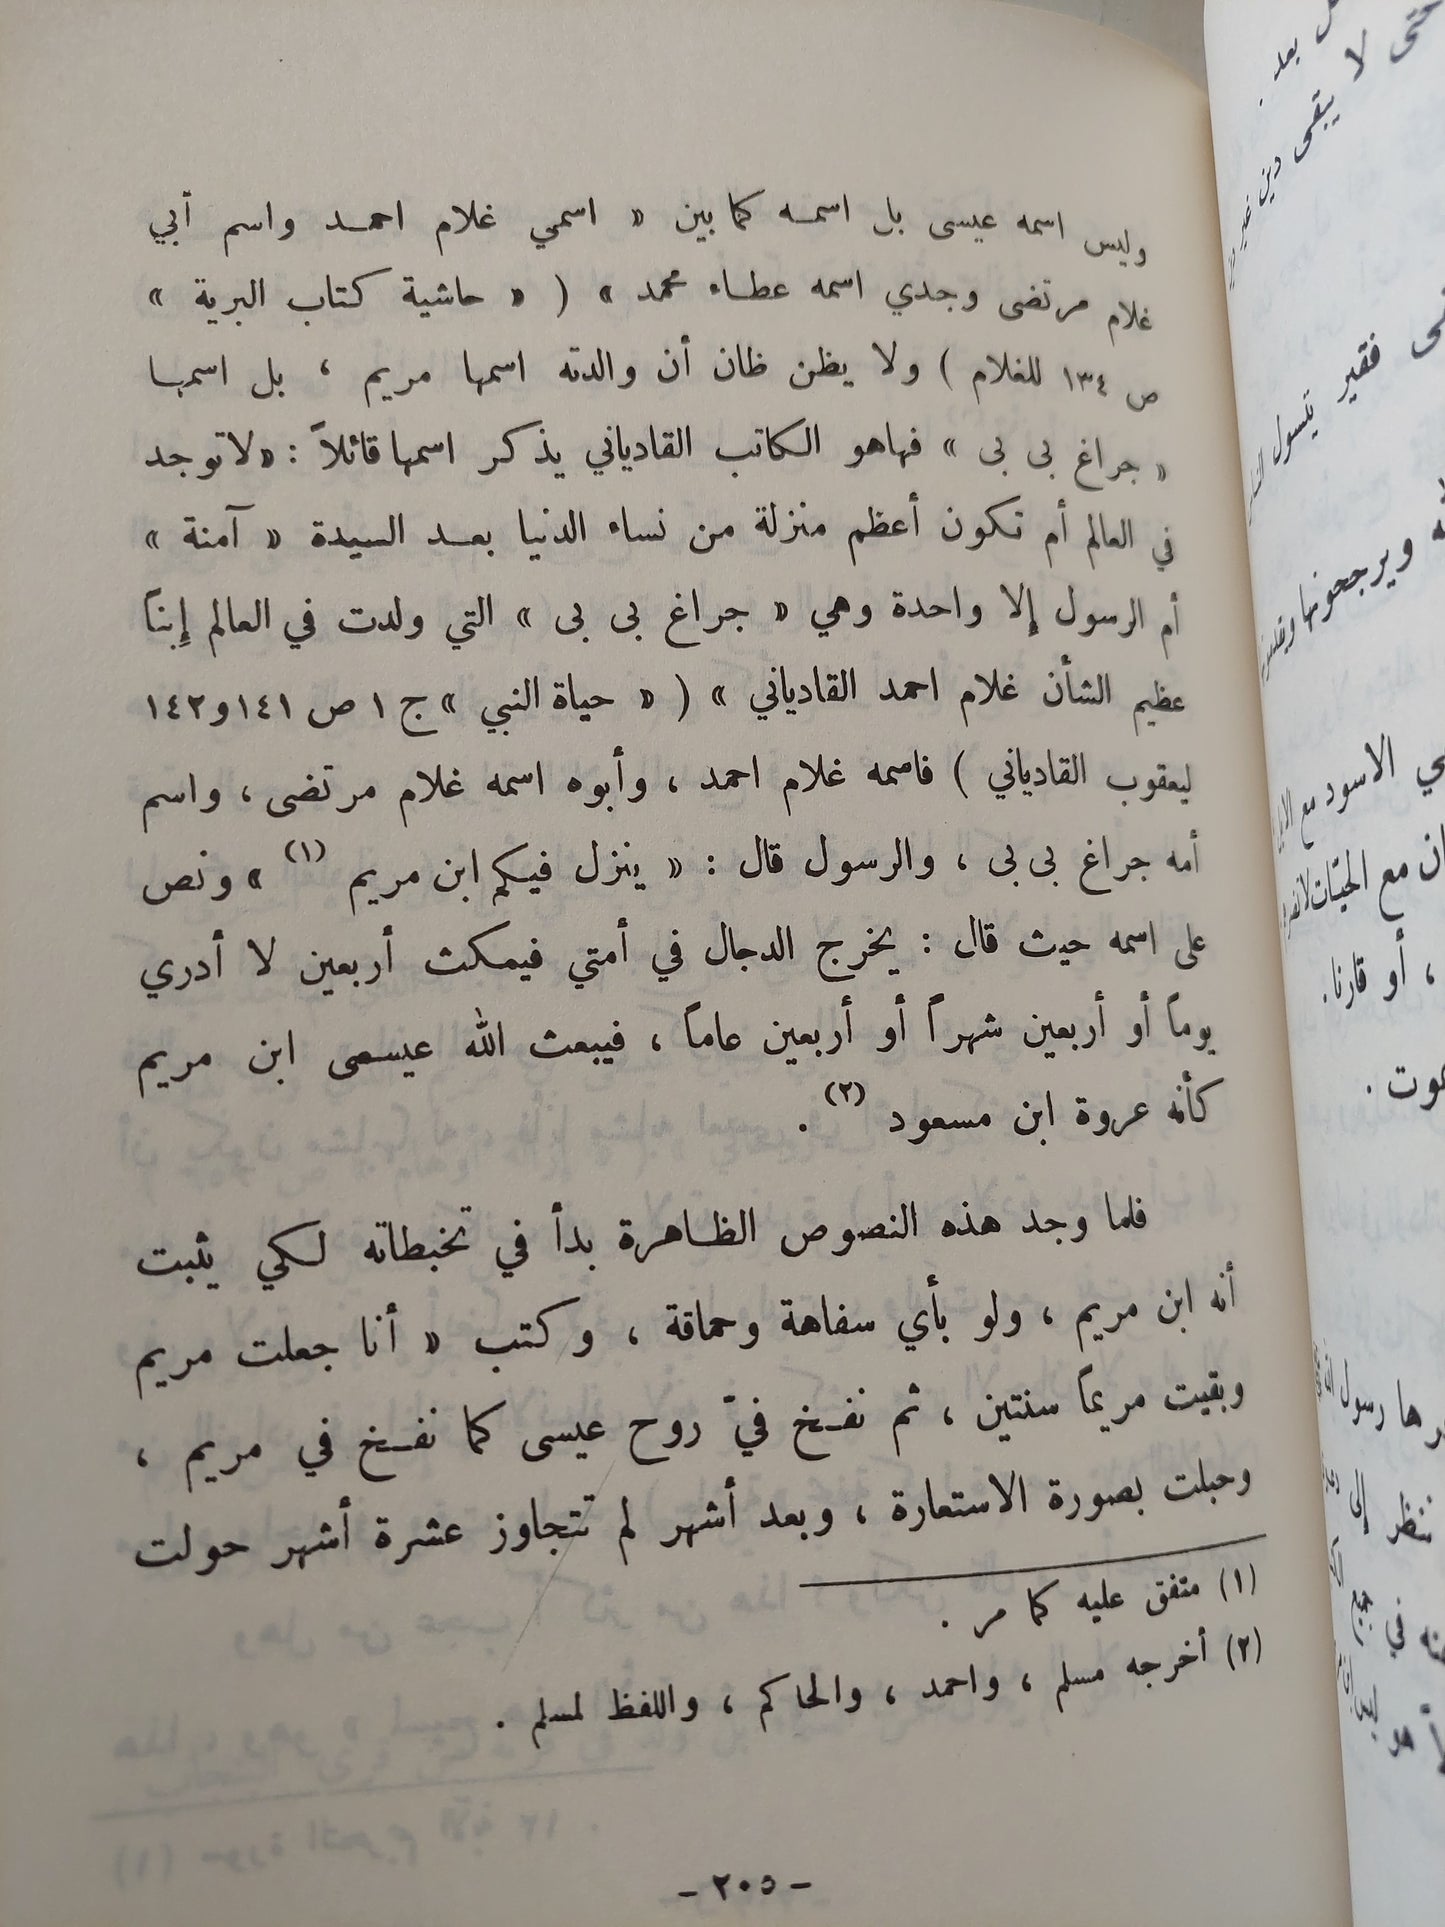 وليس اسمه عيسى بل اسمـه كما بين « اسمي غلام احمـد واسم أبي
غلام مرتضى وجدي اسمه عطـاء محمد » ( « حاشية كتاب البرية »
ص ١٣٤ للغلام ) ولا يظن ظان أن والدته اسمها مريم ، بل اسمهـا
« جراغ بى بى » فهاهو الكاتب القادياني يذكر اسمها قائلاً : « لاتوجد
في العالم أم تكون أعظم منزلة من نساء الدنيا بعـد السيدة « آمنة »
أم الرسول إلا واحدة وهي « جراغ بى بى » التي ولدت في العالم إبناً
عظيم الشأن غلام احمد القادياني » ( « حياة النبي » ج ١ ص ١٤١ و١٤٢
ليعقوب القادياني ) فاسمه غلام احمد ، وأبوه اسمه غلام مرتضى ، واسم
أمه جراغ بى بى ، والرسول قال : « ينزل فيكم ابن مريم (١) » ونص
على اسمه حيث قال : يخرج الدجال في أمتي فيمكث أربعين لا أدري
يوماً أو أربعين شهراً أو أربعين عاماً ، فيبعث الله عيسى ابن مريم
كأنه عروة ابن مسعود (٢) .
فلما وجد هذه النصوص الظـاهرة بدأ في تخبطاته لـكي يثبت
أنه ابن مريم ، ولو بأي سفاهة وحماقة ، وكتب « أنا جعلت مريم
وبقيت مريماً سنتين ، ثم نفـخ فيّ روح عيسى كما نفـخ في مريم ،
وحبلت بصورة الاستعارة ، وبعد أشهر لم تتجاوز عشرة أشهر حولت
(١) متفق عليه كما مر .
(٢) أخرجه مسلم ، واحمد ، والحاكم ، واللفظ لمسلم .
- ٢٠٥ -
بعد .
حتى لا يبقى دين غير
فقير يتسول
ويرجحونها
الاسود مع
مع الحيات
، أو قارنا .
رسول
تنظر إلى
في جميع
هو ليس